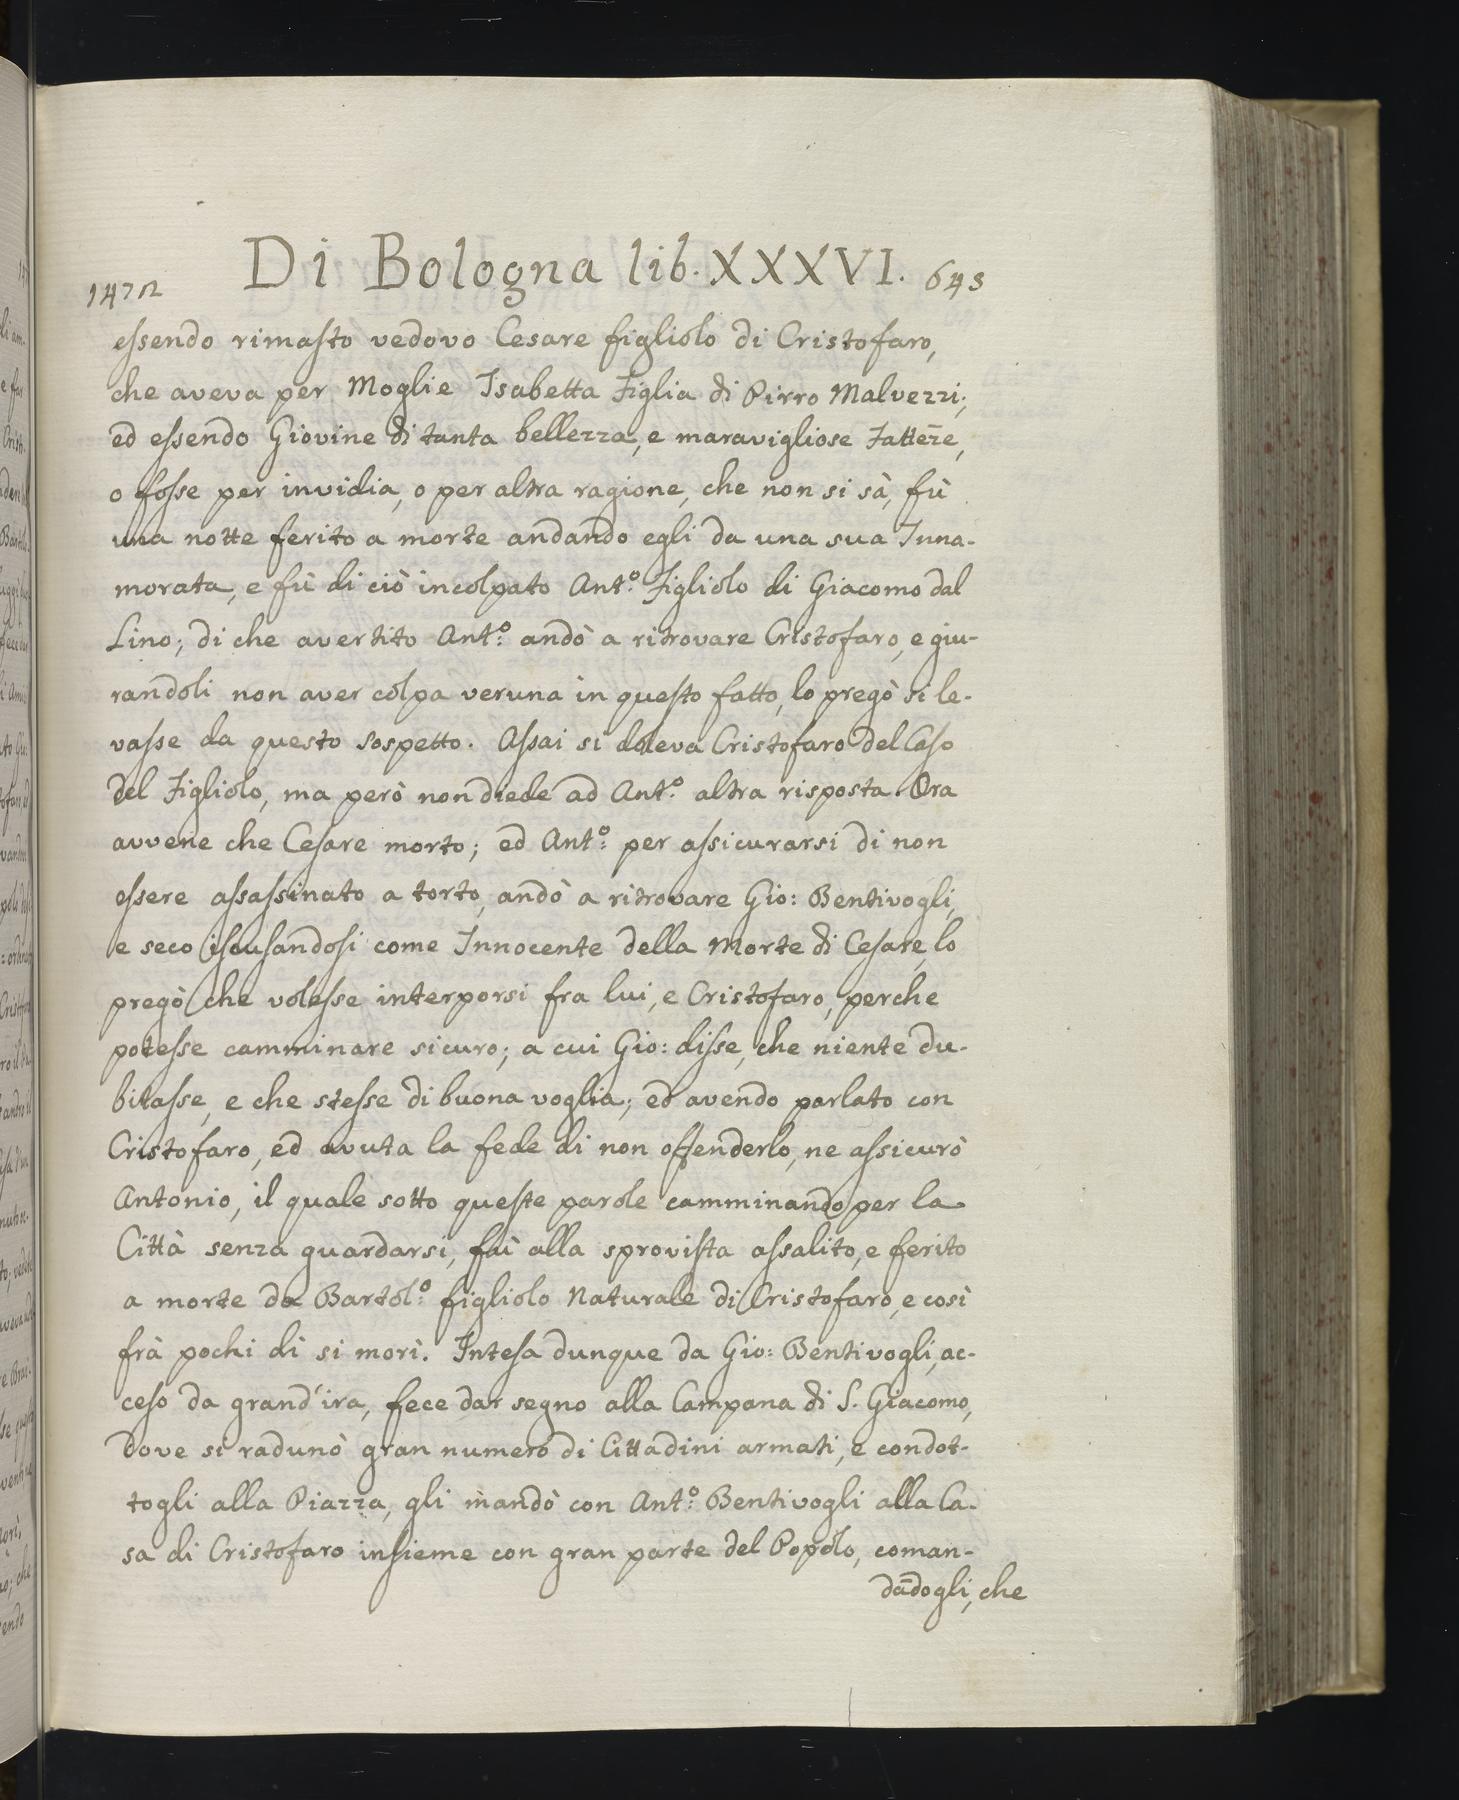 Di Bologna lib. XXXVI. 643
1472
essendo rimasto vedovo Cesare figliolo di Cristofaro,
che aveva per Moglie Isabetta Figlia di Pirro Malvezzi;
ed essendo Giovine di tanta bellezza, e maravigliose Fattez̄e,
o fosse per invidia, o per altra ragione, che non si sà, fù
una notte ferito a morte andando egli da una sua Inna-
morata, e fù di ciò incolpato Ant.º Figliolo di Giacomo dal
Lino; di che avertito Ant.º andò a ritrovare Cristofaro, e giu-
randoli non aver colpa veruna in questo fatto, lo pregò si le-
vasse da questo sospetto. Assai si doleva Cristofaro del Caso
del Figliolo, ma però non diede ad Ant.º altra risposta. Ora
avvene che Cesare morto; ed Ant.º per assicurarsi di non
essere assassinato a torto, andò a ritrovare Gio: Bentivogli,
e seco iscusandosi come Innocente della Morte di Cesare, lo
pregò che volesse interporsi fra lui, e Cristofaro, perche
potesse camminare sicuro; a cui Gio: disse, che niente du-
bitasse, e che stesse di buona voglia; ed avendo parlato con
Cristofaro, ed avuta la fede di non offenderlo, ne assicurò
Antonio, il quale sotto queste parole camminando per la
Città senza guardarsi, fù alla sprovista assalito, e ferito
a morte da Bartol.º figliolo Naturale di Cristofaro, e così
frà pochi dì si morì. Intesa dunque da Gio: Bentivogli, ac-
ceso da grand'ira, fece dar segno alla Campana di S. Giacomo,
dove si radunò gran numero di Cittadini armati, e condot-
togli alla Piazza, gli mandò con Ant.º Bentivogli alla Ca-
sa di Cristofaro insieme con gran parte del Popolo, coman-
dādogli, che